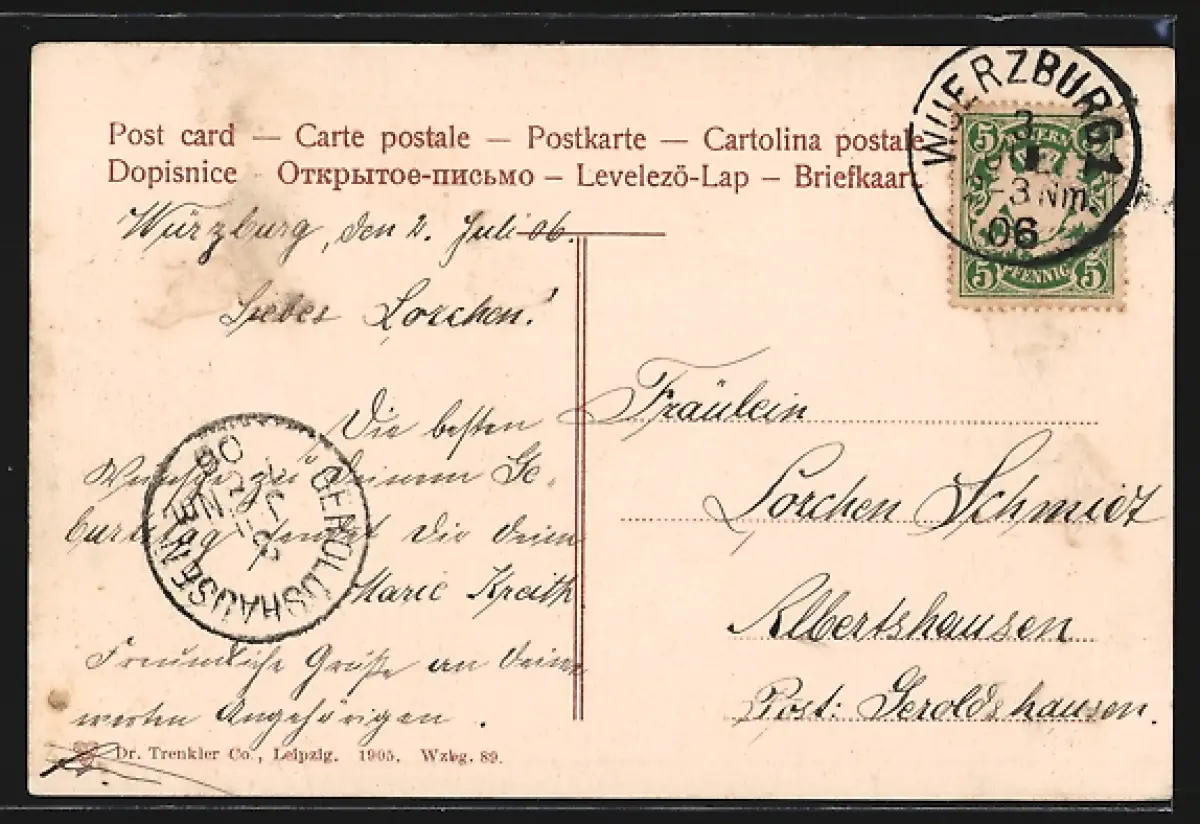 Post card — Carte postale — Postkarte — Cartolina postale
Dopisnice - Открытое-письмо — Levelező-Lap — Briefkaart
WUERZBURG 1
3
-3 Nm.
06
5 BAYERN 5
5 PFENNIG 5
Würzburg, den 2. Juli 06.
Liebes Lorchen!
Die besten
Wünsche zu Deinem Ge-
burtstag sendet Dir Deine
Marie Kreith
Freundliche Grüße an Deine
werten Angehörigen.
Fräulein
Lorchen Schmidt
Albertshausen
Post: Geroldshausen.
GEROLDSHAUSEN
06
Dr. Trenkler Co., Leipzig. 1905. Wzbg. 89.